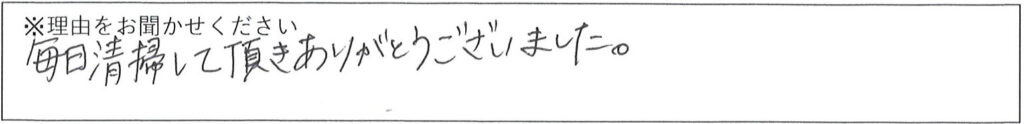 ※理由をお聞かせください
毎日清掃して頂きありがとうございました。